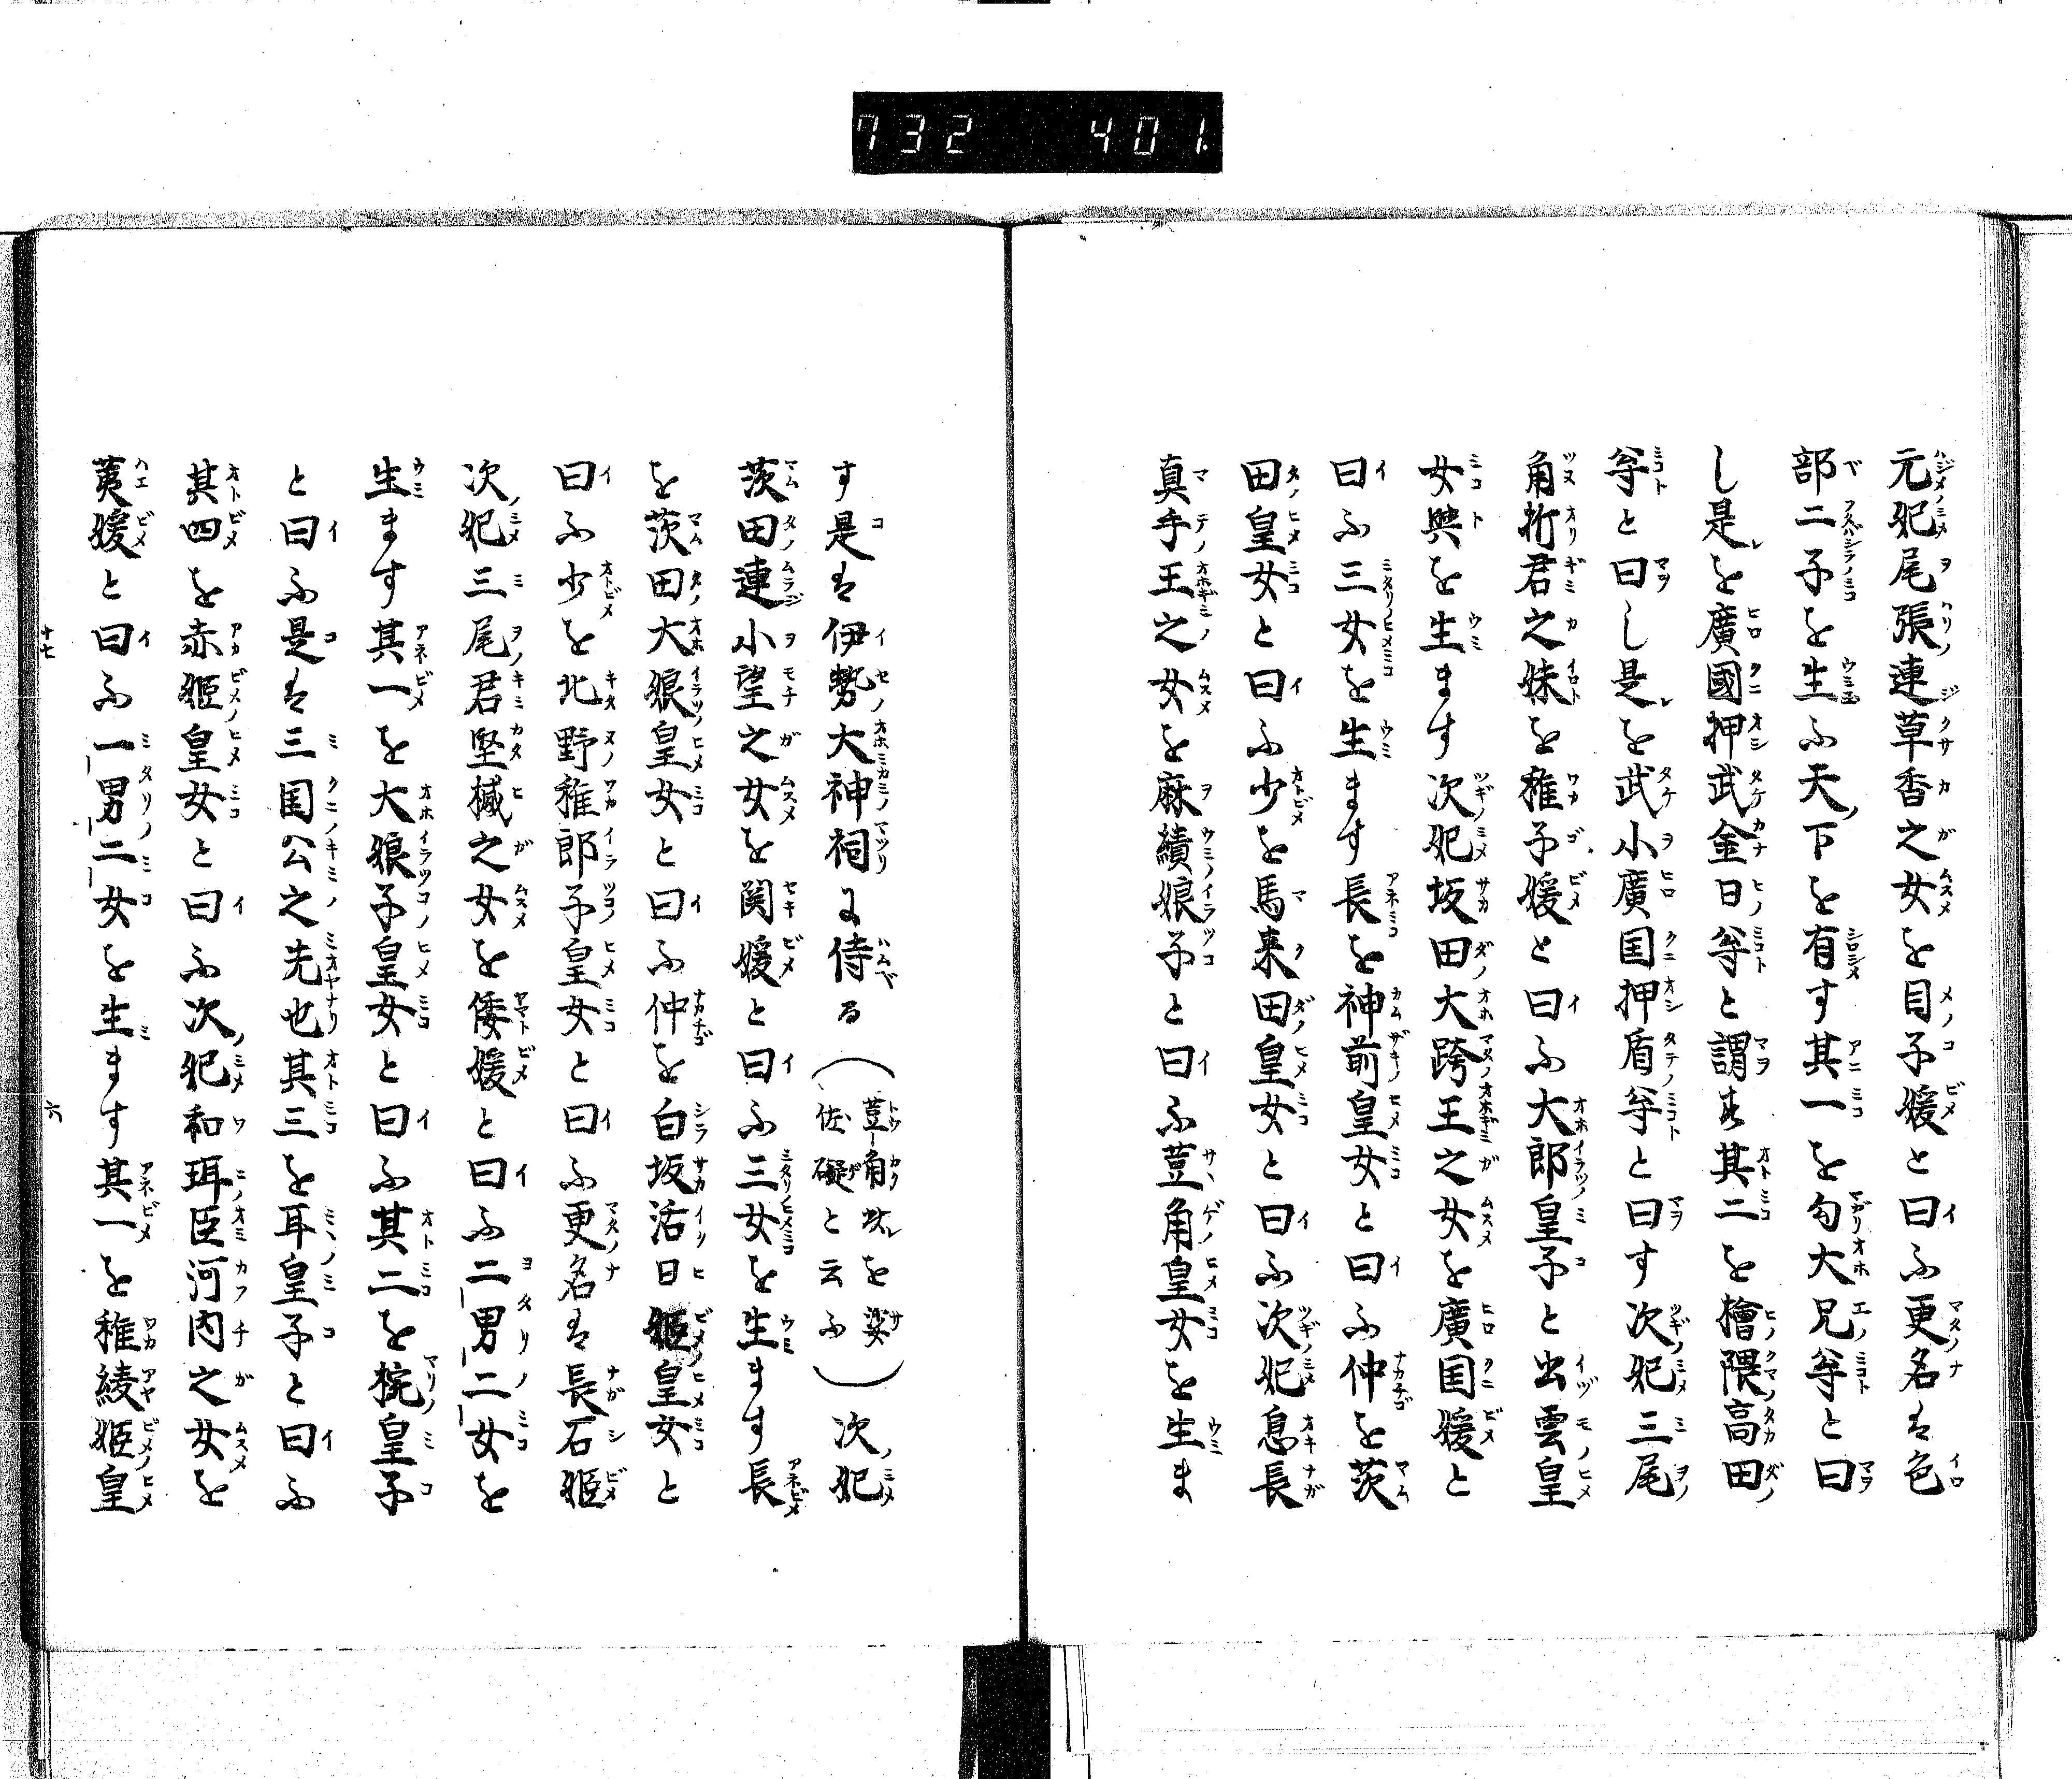 732 401
元妃尾張連草香之女を目子媛と曰ふ更名は色
部二子を生ふ天下を有す其一を勾大兄𡬶と曰
し是を廣國押武金日𡬶と謂す其二を檜隈高田
𡬶と曰し是を武小廣国押盾𡬶と曰す次妃三尾
角折君之妹を稚子媛と曰ふ大郎皇子と出雲皇
女與を生ます次妃坂田大跨王之女を廣国媛と
曰ふ三女を生ます長を神前皇女と曰ふ仲を茨
田皇女と曰ふ少を馬来田皇女と曰ふ次妃息長
真手王之女を麻績娘子と曰ふ荳角皇女を生ま
す是は伊勢大神祠に侍る(荳角此を娑佐礙と云ふ)次妃
茨田連小望之女を関媛と曰ふ三女を生ます長
を茨田大娘皇女と曰ふ仲を白坂活日姫皇女と
曰ふ少を北野稚郎子皇女と曰ふ更名は長石姫
次妃三尾君堅楲之女を倭媛と曰ふ二男二女を
生ます其一を大娘子皇女と曰ふ其二を椀皇子
と曰ふ是は三国公之先也其三を耳皇子と曰ふ
其四を赤姫皇女と曰ふ次妃和珥臣河内之女を
荑媛と曰ふ一男二女を生ます其一を稚綾姫皇
十七 六